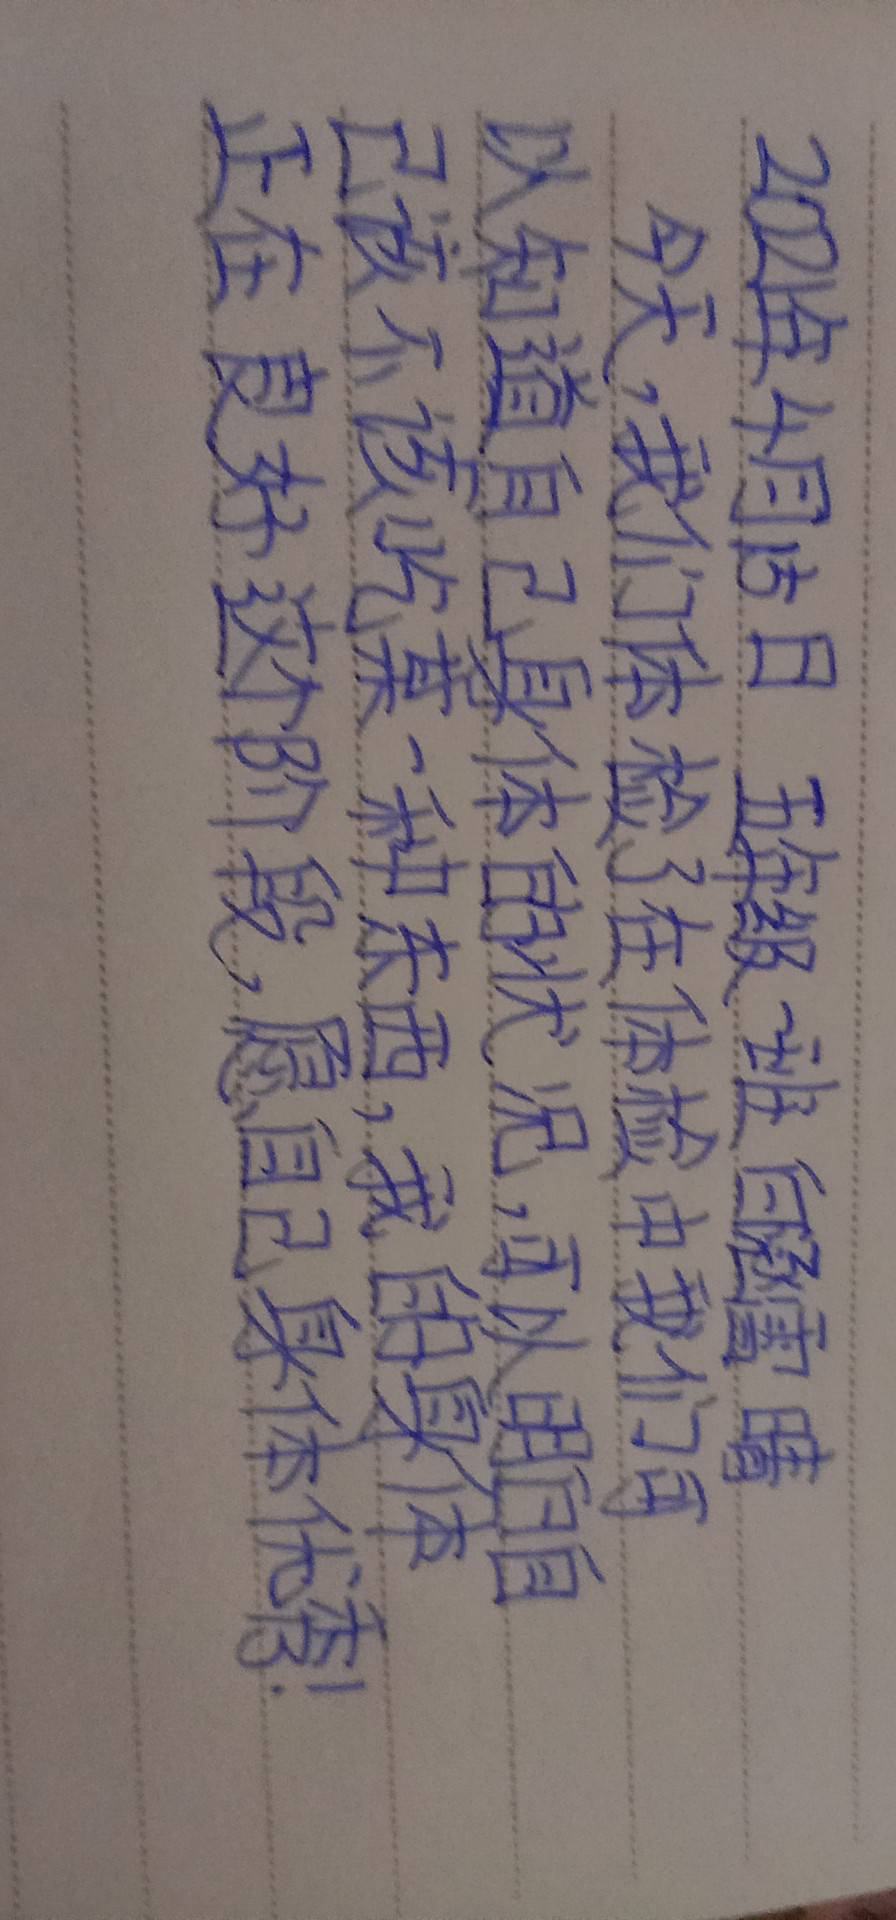 2021年4月15日 五年级一班 白 雪 晴
今天,我们体检了在体检中我们可
以知道自己身体的状况,可以明白自
己该不该吃某一种东西,我的身体
正在良好这个阶段,愿自己身体优秀!